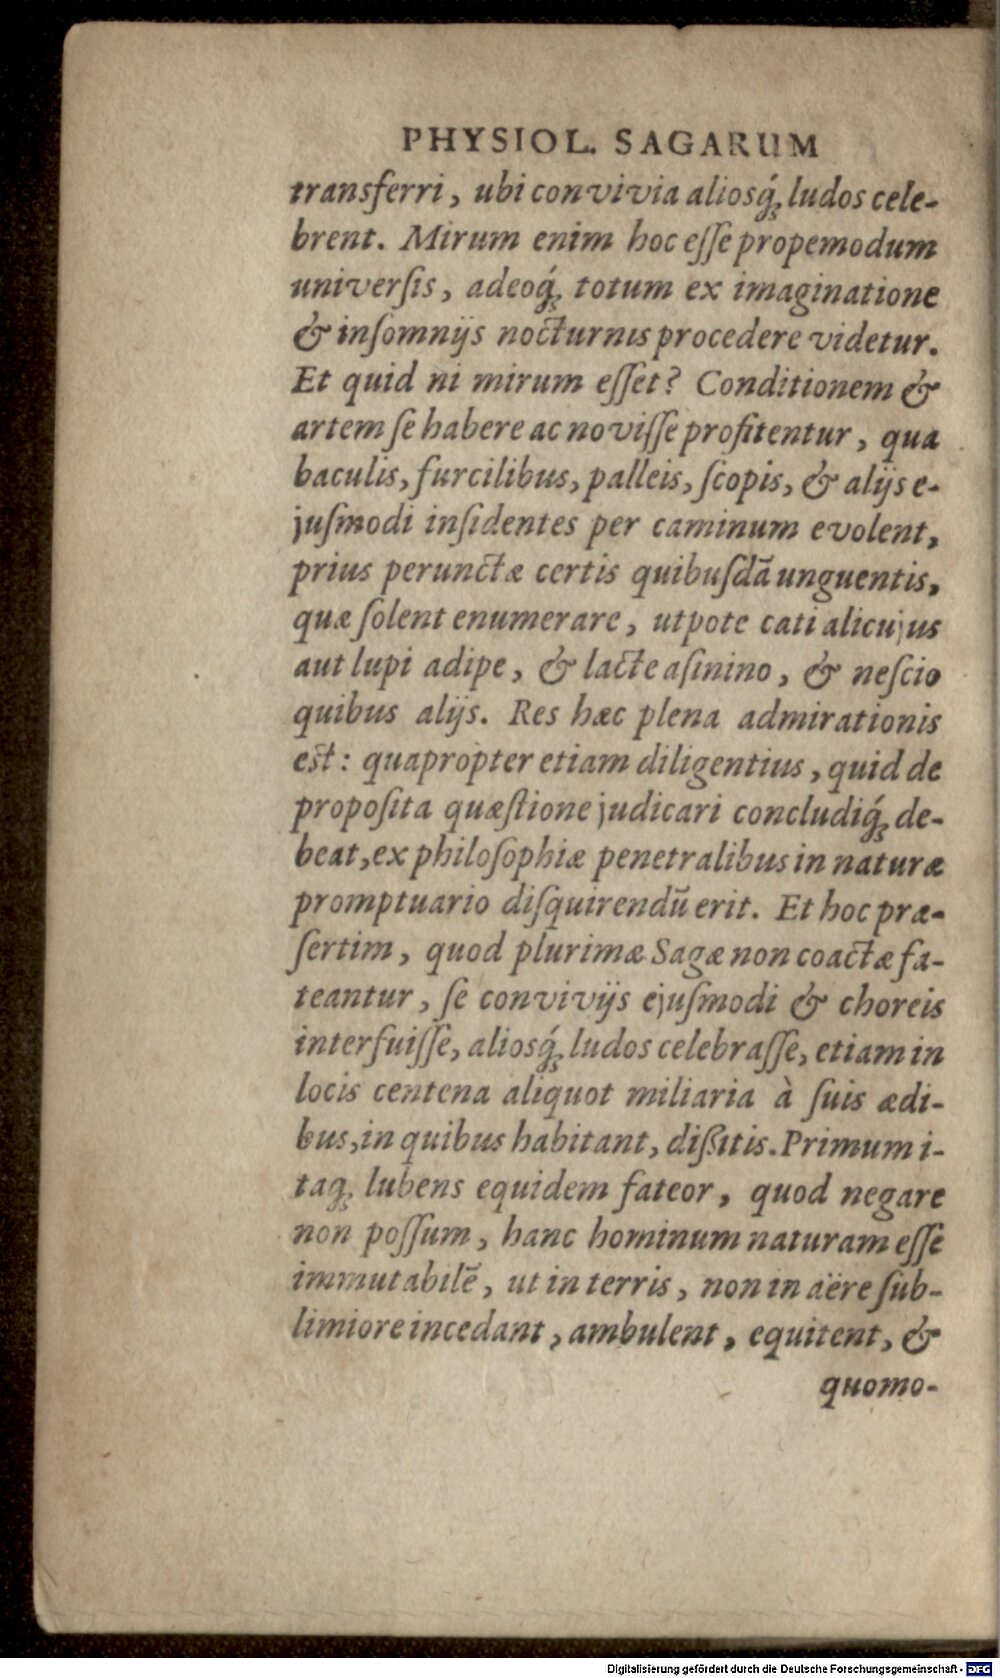 PHYSIOL. SAGARUM
transferri, ubi convivia aliosq́ꝫ ludos cele-
brent. Mirum enim hoc eſſe propemodum
univerſis, adeoq́ꝫ totum ex imaginatione
& inſomnijs nocturnis procedere videtur.
Et quid ni mirum eſſet? Conditionem &
artem ſe habere ac noviſſe profitentur, qua
baculis, furcilibus, palleis, ſcopis, & alijs e-
juſmodi inſidentes per caminum evolent,
prius perunctæ certis quibuſdā unguentis,
quæ ſolent enumerare, utpote cati alicujus
aut lupi adipe, & lacte aſinino, & neſcio
quibus alijs. Res hæc plena admirationis
est: quapropter etiam diligentius, quid de
propoſita quæſtione judicari concludiq́ꝫ de-
beat, ex philoſophiæ penetralibus in naturæ
promptuario diſquirendū erit. Et hoc præ-
ſertim, quod plurimæ Sagæ non coactæ fa-
teantur, ſe convivijs ejuſmodi & choreis
interfuiſſe, aliosq́ꝫ ludos celebraſſe, etiam in
locis centena aliquot miliaria à ſuis ædi-
bus, in quibus habitant, diſsitis. Primum i-
taqꝫ lubens equidem fateor, quod negare
non poſſum, hanc hominum naturam eſſe
immutabilē, ut in terris, non in aëre ſub-
limiore incedant, ambulent, equitent, &
quomo-
Digitalisierung gefördert durch die Deutsche Forschungsgemeinschaft - DFG